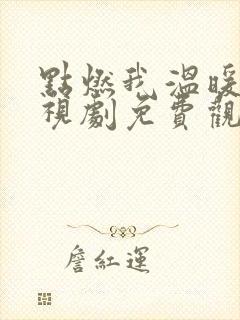 點燃我溫暖
視劇免費觀
詹紅運